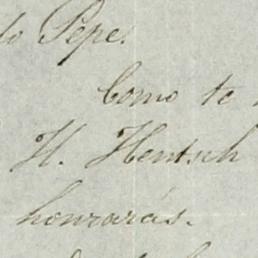 do Pepe.
Como te
H. Hentsch
honrarás.